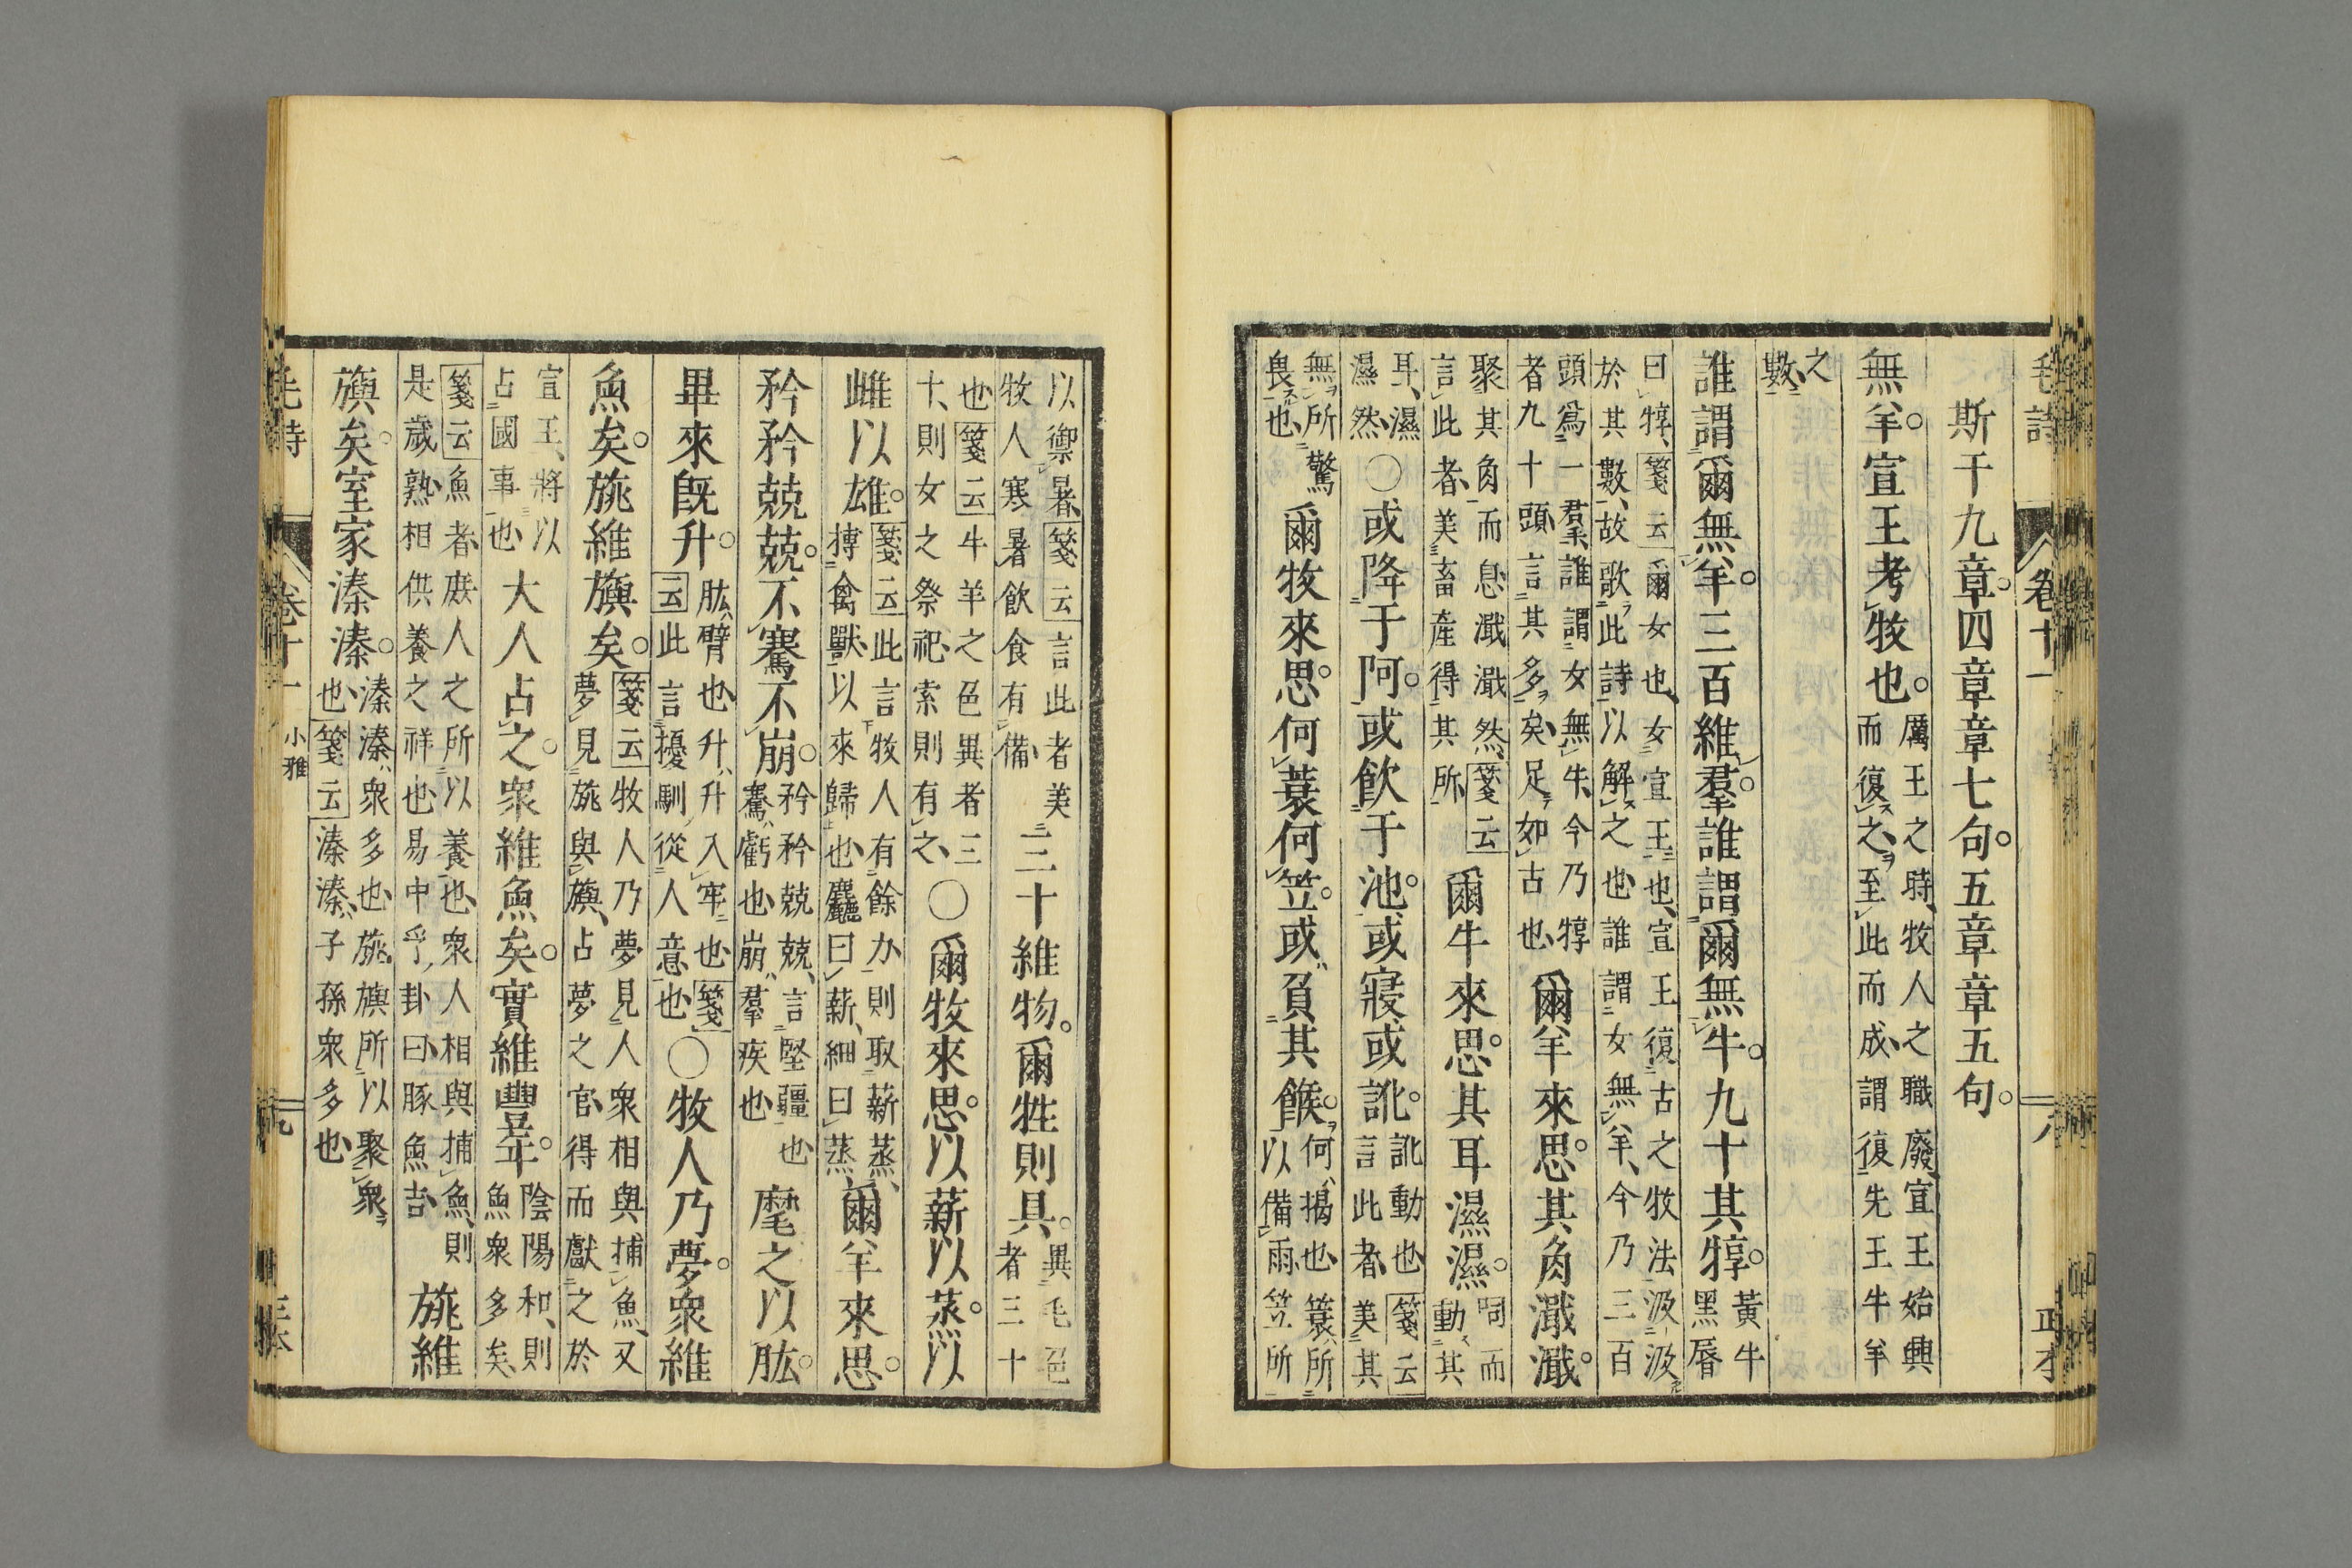 毛詩 卷十一 八
斯干九章。四章章七句。五章章五句。
無羊。宣王考牧也。厲王之時、牧人之職廢、宣王始興
而復之、至此而成、謂復先王牛羊
之
數、
誰謂爾無羊。三百維羣。誰謂爾無牛。九十其犉。黃牛
黑脣
曰犉、箋云爾女也、女宣王也、宣王復古之牧法汲汲
於其數、故歌此詩以解之也、誰謂女無羊、今乃三百
頭爲一羣、誰謂女無牛、今乃犉
者九十頭、言其多矣、足如古也、
爾羊來思。其角濈濈。
聚其角而息濈濈然、箋云
言此者、美畜產得其所
爾牛來思。其耳濕濕。呞而
動其
耳、濕
濕然、
○或降于阿。或飲于池。或寢或訛。訛動也、箋云
言此者、美其
無所驚
畏也、
爾牧來思。何蓑何笠。或負其餱。何、揭也、蓑、所
以備雨、笠所
以禦暑、箋云言此者美
牧人寒暑飲食有備、
三十維物。爾牲則具。異毛色
者三十
也、箋云牛羊之色異者三
十、則女之祭祀、索則有之、
○爾牧來思。以薪以蒸。以
雌以雄。箋云此言牧人有餘力、則取薪蒸、
搏禽獸以來歸也、麤曰薪、細曰蒸、
爾羊來思。
矜矜兢兢。不騫不崩。矜矜兢兢、言堅彊也
騫、虧也、崩、羣疾也
麾之以肱。
畢來旣升。肱、臂也、升、升入牢也、箋
云此言擾馴從人意也、
○牧人乃夢。衆維
魚矣。旐維旟矣。箋云牧人乃夢見人衆相與捕魚、又
夢見旐與旟、占夢之官得而獻之於
宣王、將以
占國事也、
大人占之。衆維魚矣。實維豐年。陰陽和、則
魚衆多矣、
箋云魚者、庶人之所以養也、衆人相與捕魚、則
是歲熟、相供養之祥也、易中孚、卦曰、豚魚吉、
旐維
旟矣。室家溱溱。溱溱、衆多也、旐旟所以聚衆
也、箋云溱溱、子孫衆多也、
毛詩 卷十一 小雅 九